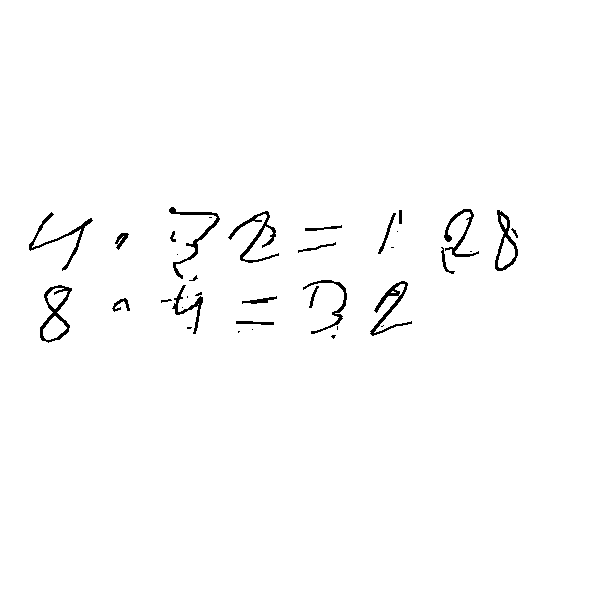 4 · 32 = 128
8 · 4 = 32